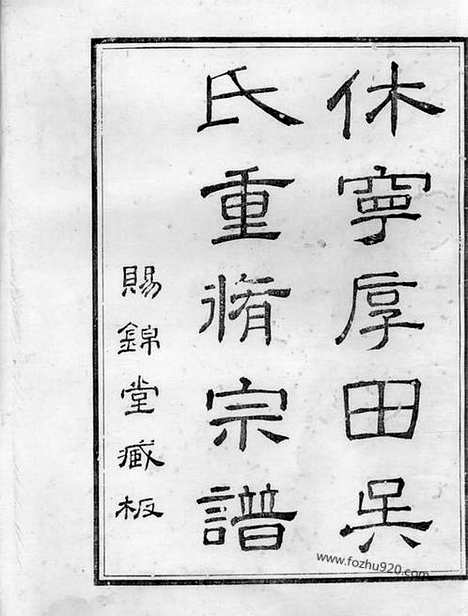 休寧厚田吳
氏重脩宗譜
賜錦堂藏板
www.fozhu920.com